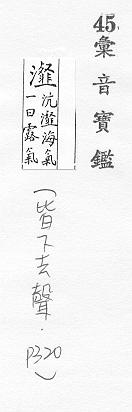 45.彙音寶鑑
瀣
沆瀣海氣
一曰露氣
(皆下去聲.
p320)